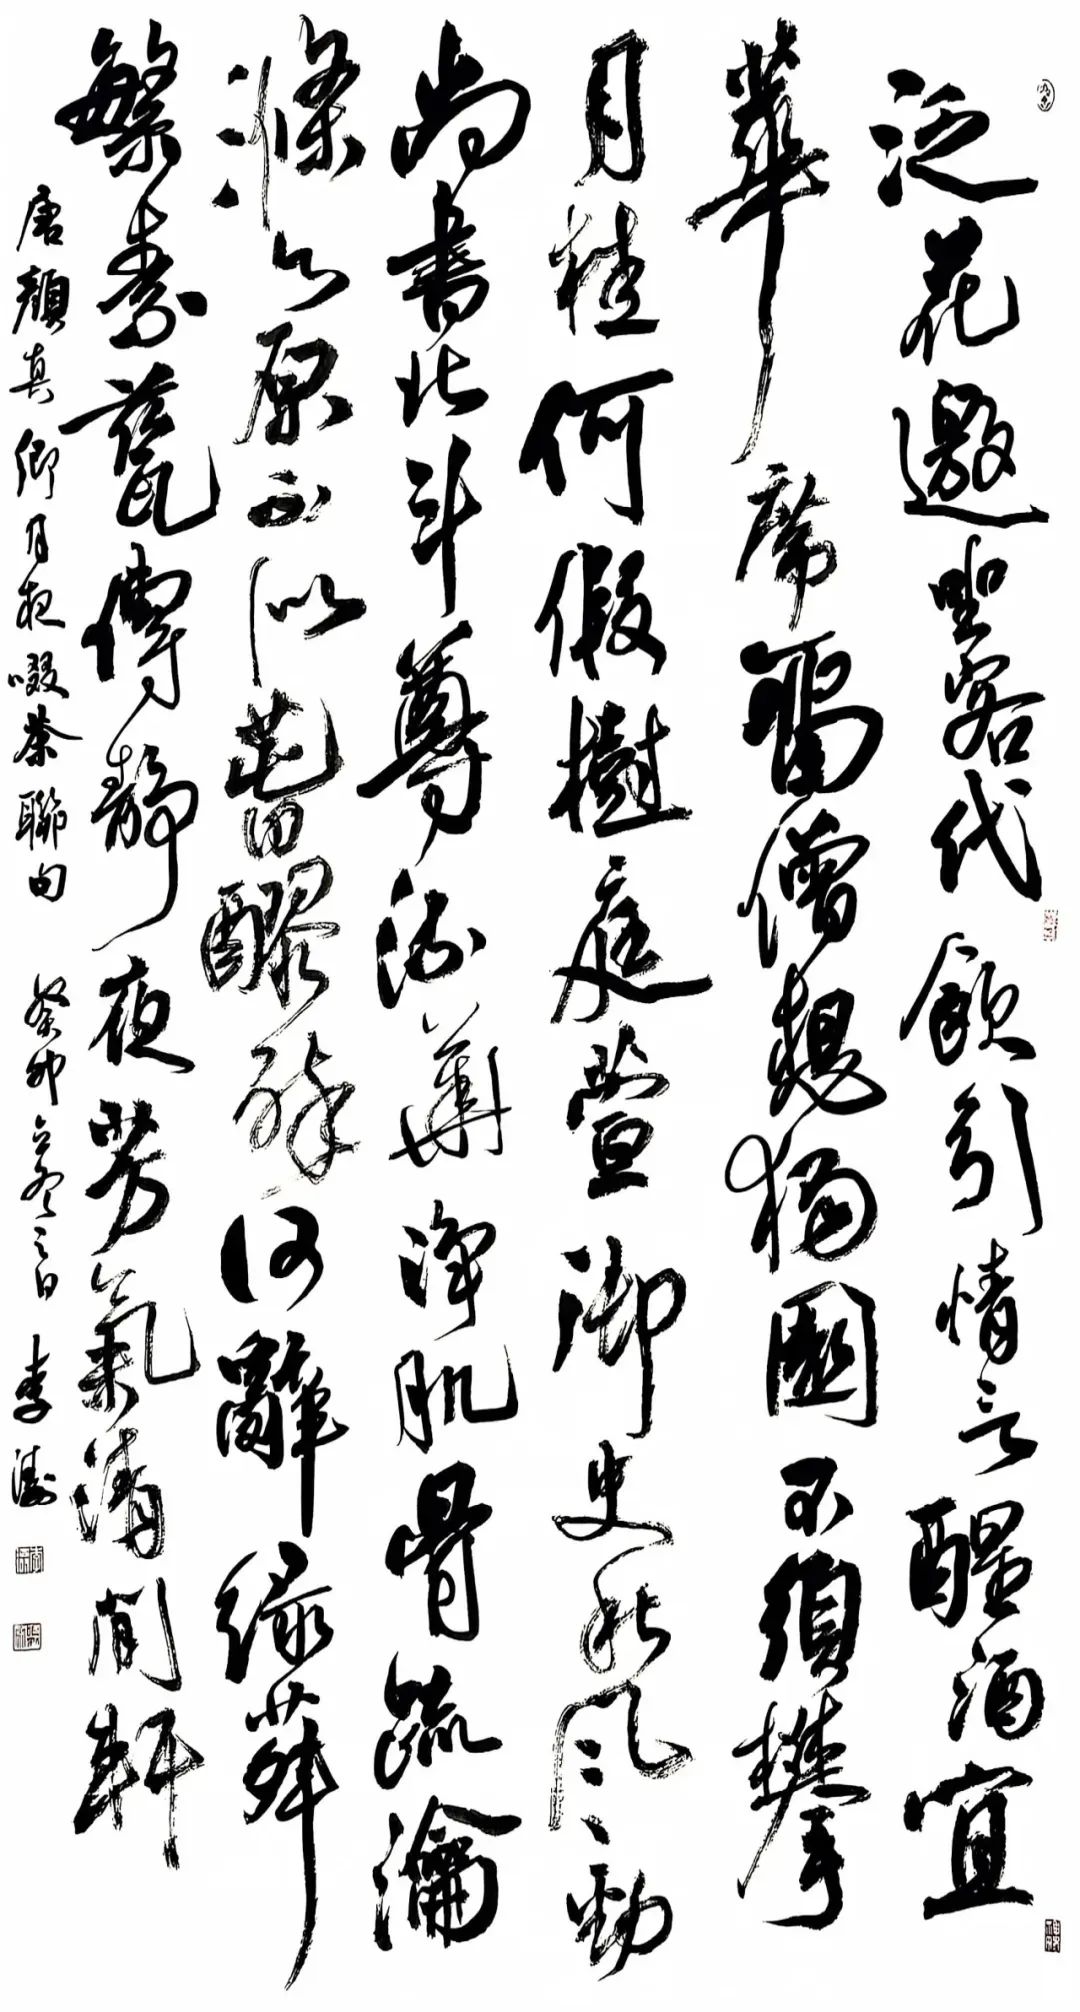 泛花邀坐客代飲引情言醒酒宜
華席留僧想獨園不須攀
月桂何假樹庭萱御史秋風勁
尚書北斗尊流華淨肌骨疏瀹
滌心原不似春醪醉何辭綠菽
繁素瓷傳靜夜芳氣清閒軒
唐顏真卿月夜啜茶聯句 癸卯立冬之日 李